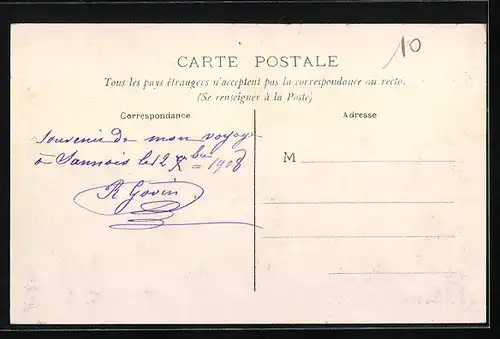 10
CARTE POSTALE
Tous les pays étrangers n'acceptent pas la correspondance au recto.
(Se renseigner à la Poste)
Correspondance
Adresse
Souvenir de mon voyage
à Sannois le 12 Xbre 1908
M
R Govin